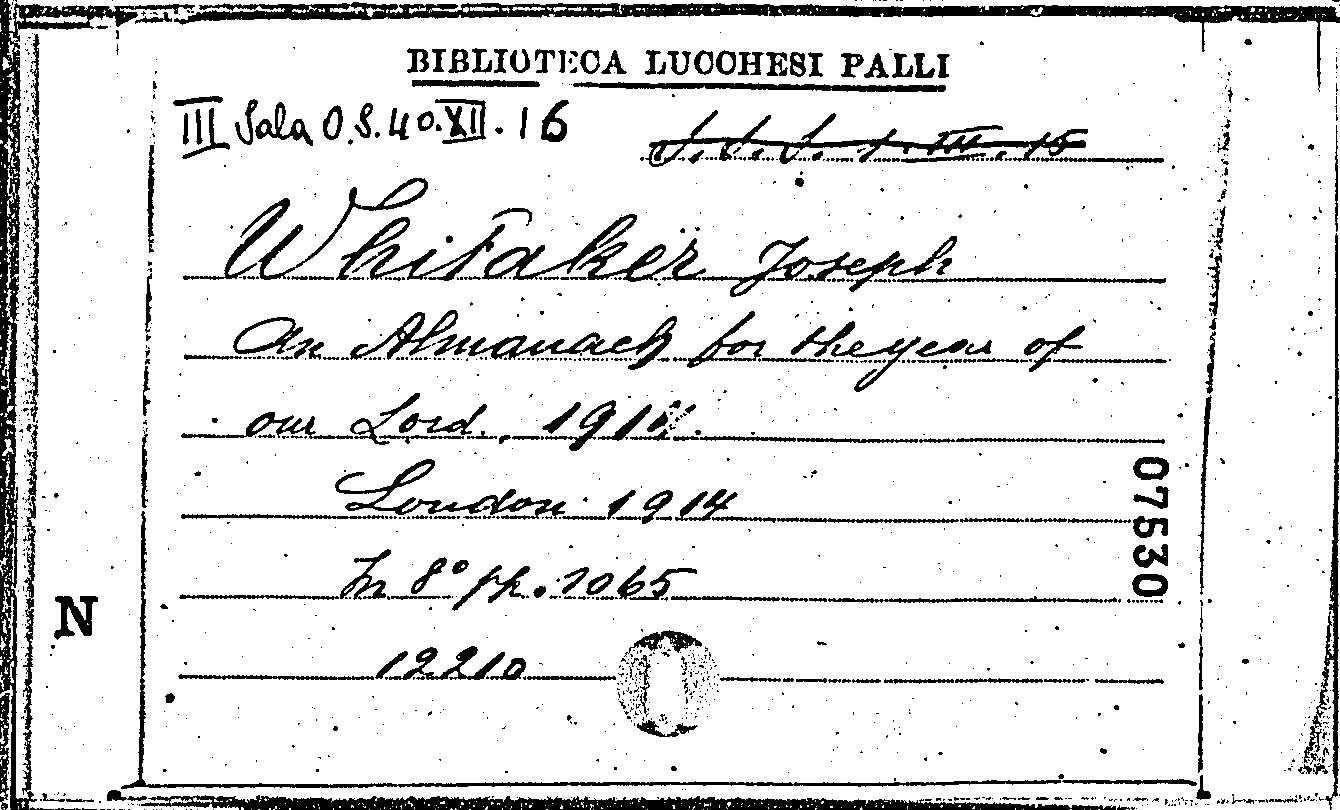 BIBLIOTECA LUCCHESI PALLI
III Sala O.S.40.XII.16
Whitaker Joseph
An Almanach for the year of
our Lord, 191
London 1914
In 8° pp. 1065
12210
07530
N